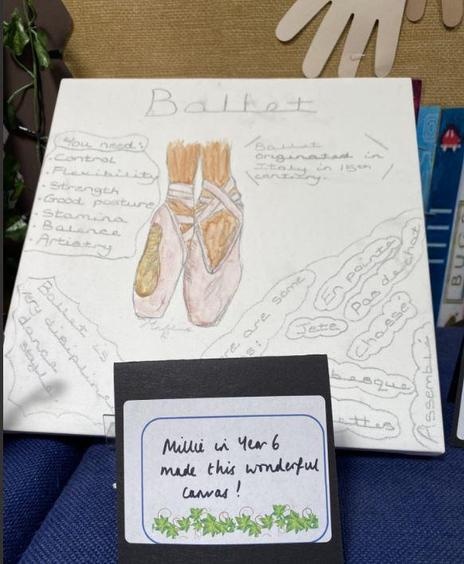 Ballet
You need:
· Control
· Flexibility
· Strength
· Good posture
· Stamina
· Balance
· Artistry
Ballet
originated in
Italy in 15th
century.
Ballet is
very
dance
style.
are some
En pointe
Pas de chat
Jeté
Chassé
Assemblé
Millie in Year 6
made this wonderful
canvas!